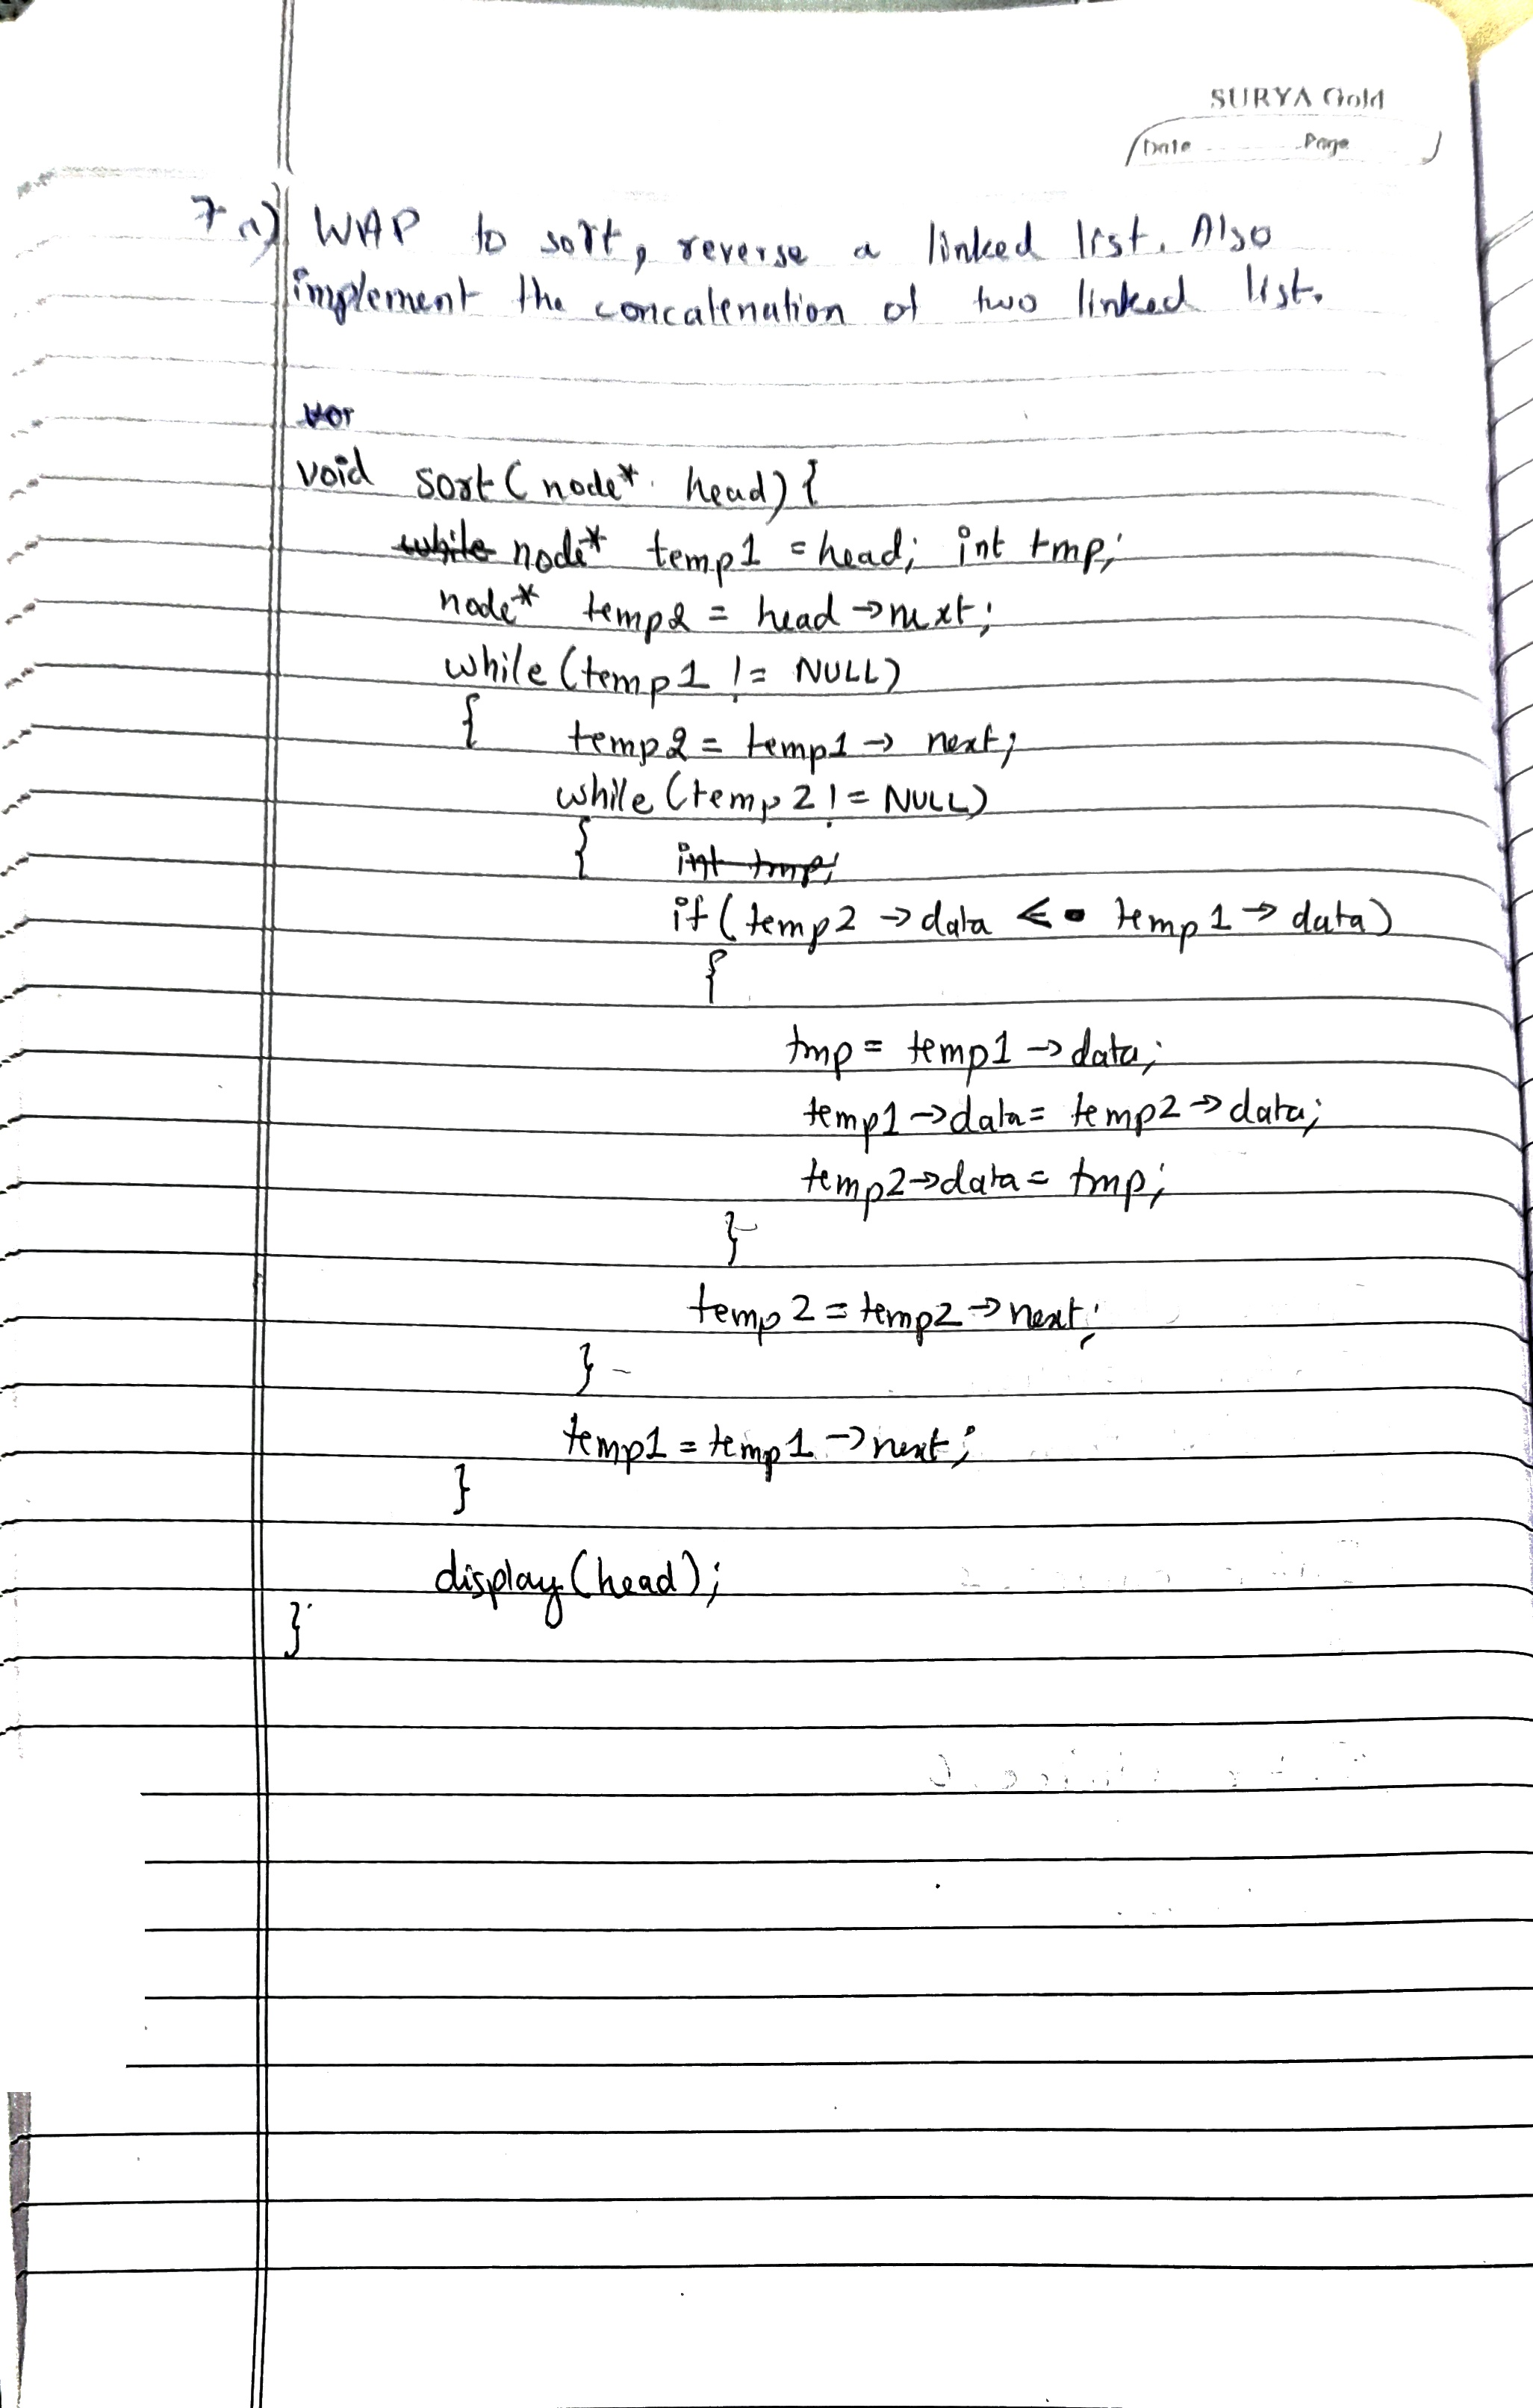 SURYA Gold
Date Page
7 a) WAP to sort, reverse a linked list. Also
implement the concatenation of two linked list.
void sort(node* head){
node* temp1 = head; int tmp;
node* temp2 = head →next;
while(temp1 != NULL)
{ temp2 = temp1 → next;
while(temp2 != NULL)
{ int tmp;
if(temp2 → data < temp1 → data)
{
tmp = temp1 → data;
temp1 → data = temp2 → data;
temp2 → data = tmp;
}
temp2 = temp2 → next;
}
temp1 = temp1 → next;
}
display(head);
}